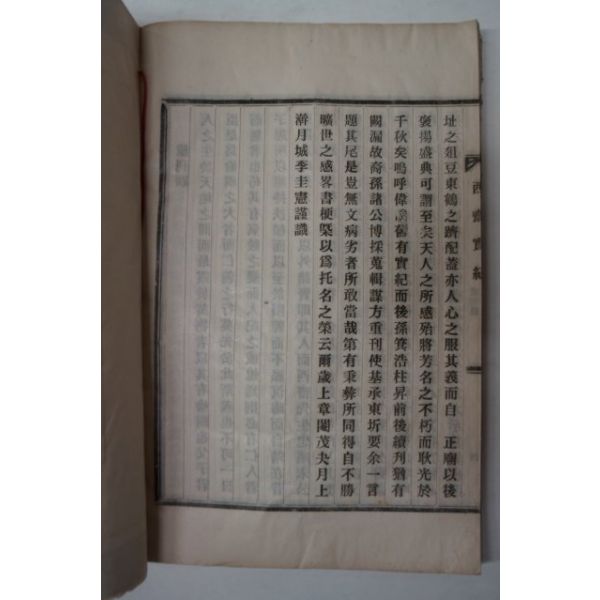 址之俎豆東鶴之躋配蓋亦人心之服其義而自 正廟以後
褒揚盛典可謂至矣天人之所感殆將芳名之不朽而耿光於
千秋矣嗚呼偉哉舊有實紀而後孫箕浩柱昇前後續刊猶有
闕漏故裔孫諸公博採蒐輯謀方重刊使基承東圻要余一言
題其尾是豈無文病劣者所敢當哉第有秉彝所同得自不勝
曠世之感畧書梗槩以爲托名之榮云爾歲上章閹茂夬月上
澣月城李圭憲謹識
西齋實紀